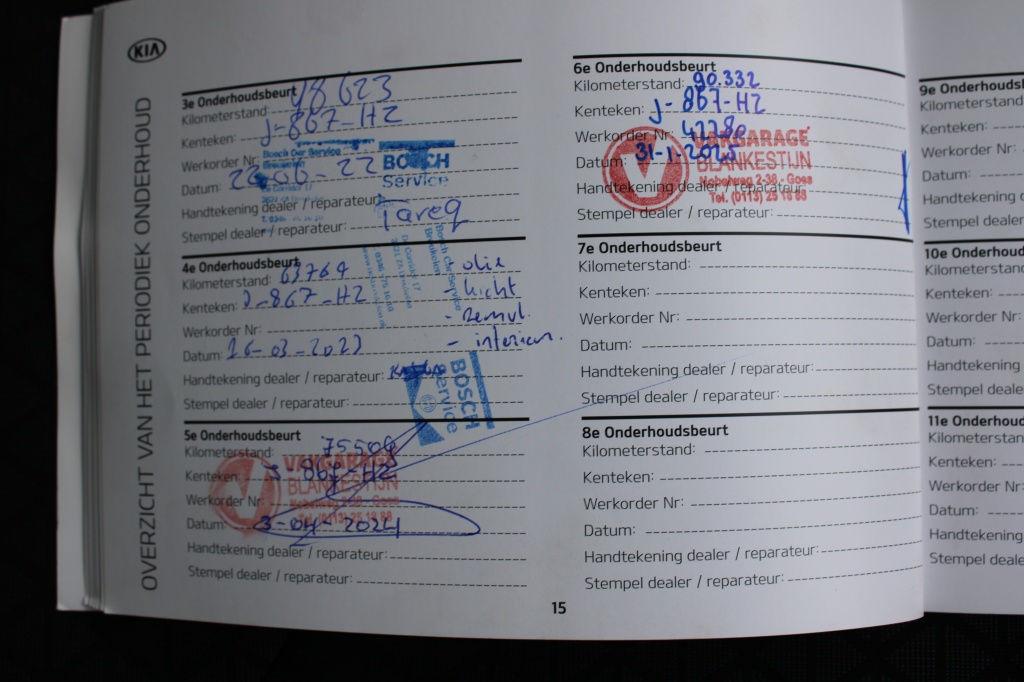 KIA
OVERZICHT VAN HET PERIODIEK ONDERHOUD
3e Onderhoudsbeurt
Kilometerstand: 48623
Kenteken: J-867-HZ
Werkorder Nr:
Bosch Car Service
BOSCH
Service
Datum: 22-06-22
Handtekening dealer / reparateur: Tareq
Stempel dealer / reparateur:
4e Onderhoudsbeurt
Kilometerstand: 63764
Kenteken: J-867-HZ
Werkorder Nr:
Datum: 16-03-2023
- olie
- lucht
- remvl.
- interieur.
Bosch Car Service
Breukelen
Handtekening dealer / reparateur:
Stempel dealer / reparateur:
BOSCH
Service
5e Onderhoudsbeurt
Kilometerstand: 75504
Kenteken: J-867-HZ
Werkorder Nr:
Datum: 3-04-2024
VAKGARAGE
BLANKESTIJN
Nobelweg 2-38 - Goes
Tel. (0113) 25 18 88
Handtekening dealer / reparateur:
Stempel dealer / reparateur:
6e Onderhoudsbeurt
Kilometerstand: 90.332
Kenteken: J-867-HZ
Werkorder Nr: 42280
Datum: 31-1-2025
VAKGARAGE
BLANKESTIJN
Nobelweg 2-38 - Goes
Tel. (0113) 25 18 88
Handtekening dealer / reparateur:
Stempel dealer / reparateur:
7e Onderhoudsbeurt
Kilometerstand:
Kenteken:
Werkorder Nr:
Datum:
Handtekening dealer / reparateur:
Stempel dealer / reparateur:
8e Onderhoudsbeurt
Kilometerstand:
Kenteken:
Werkorder Nr:
Datum:
Handtekening dealer / reparateur:
Stempel dealer / reparateur:
15
9e Onderhouds
Kilometerstand
Kenteken:
Werkorder N
Datum:
Handtekening
Stempel deale
10e Onderhoud
Kilometerstand
Kenteken:
Werkorder N
Datum:
Handtekening
Stempel deale
11e Onderhoud
Kilometerstan
Kenteken:
Werkorder N
Datum:
Handtekening
Stempel deale